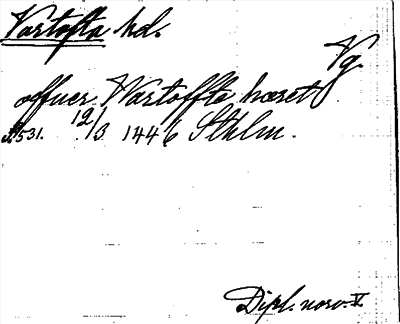 Vartofta hd.
Vg.
offuer Wartoffte hæret
S. 531. 12/3 1446 Sthlm.
Dipl. norv. V.